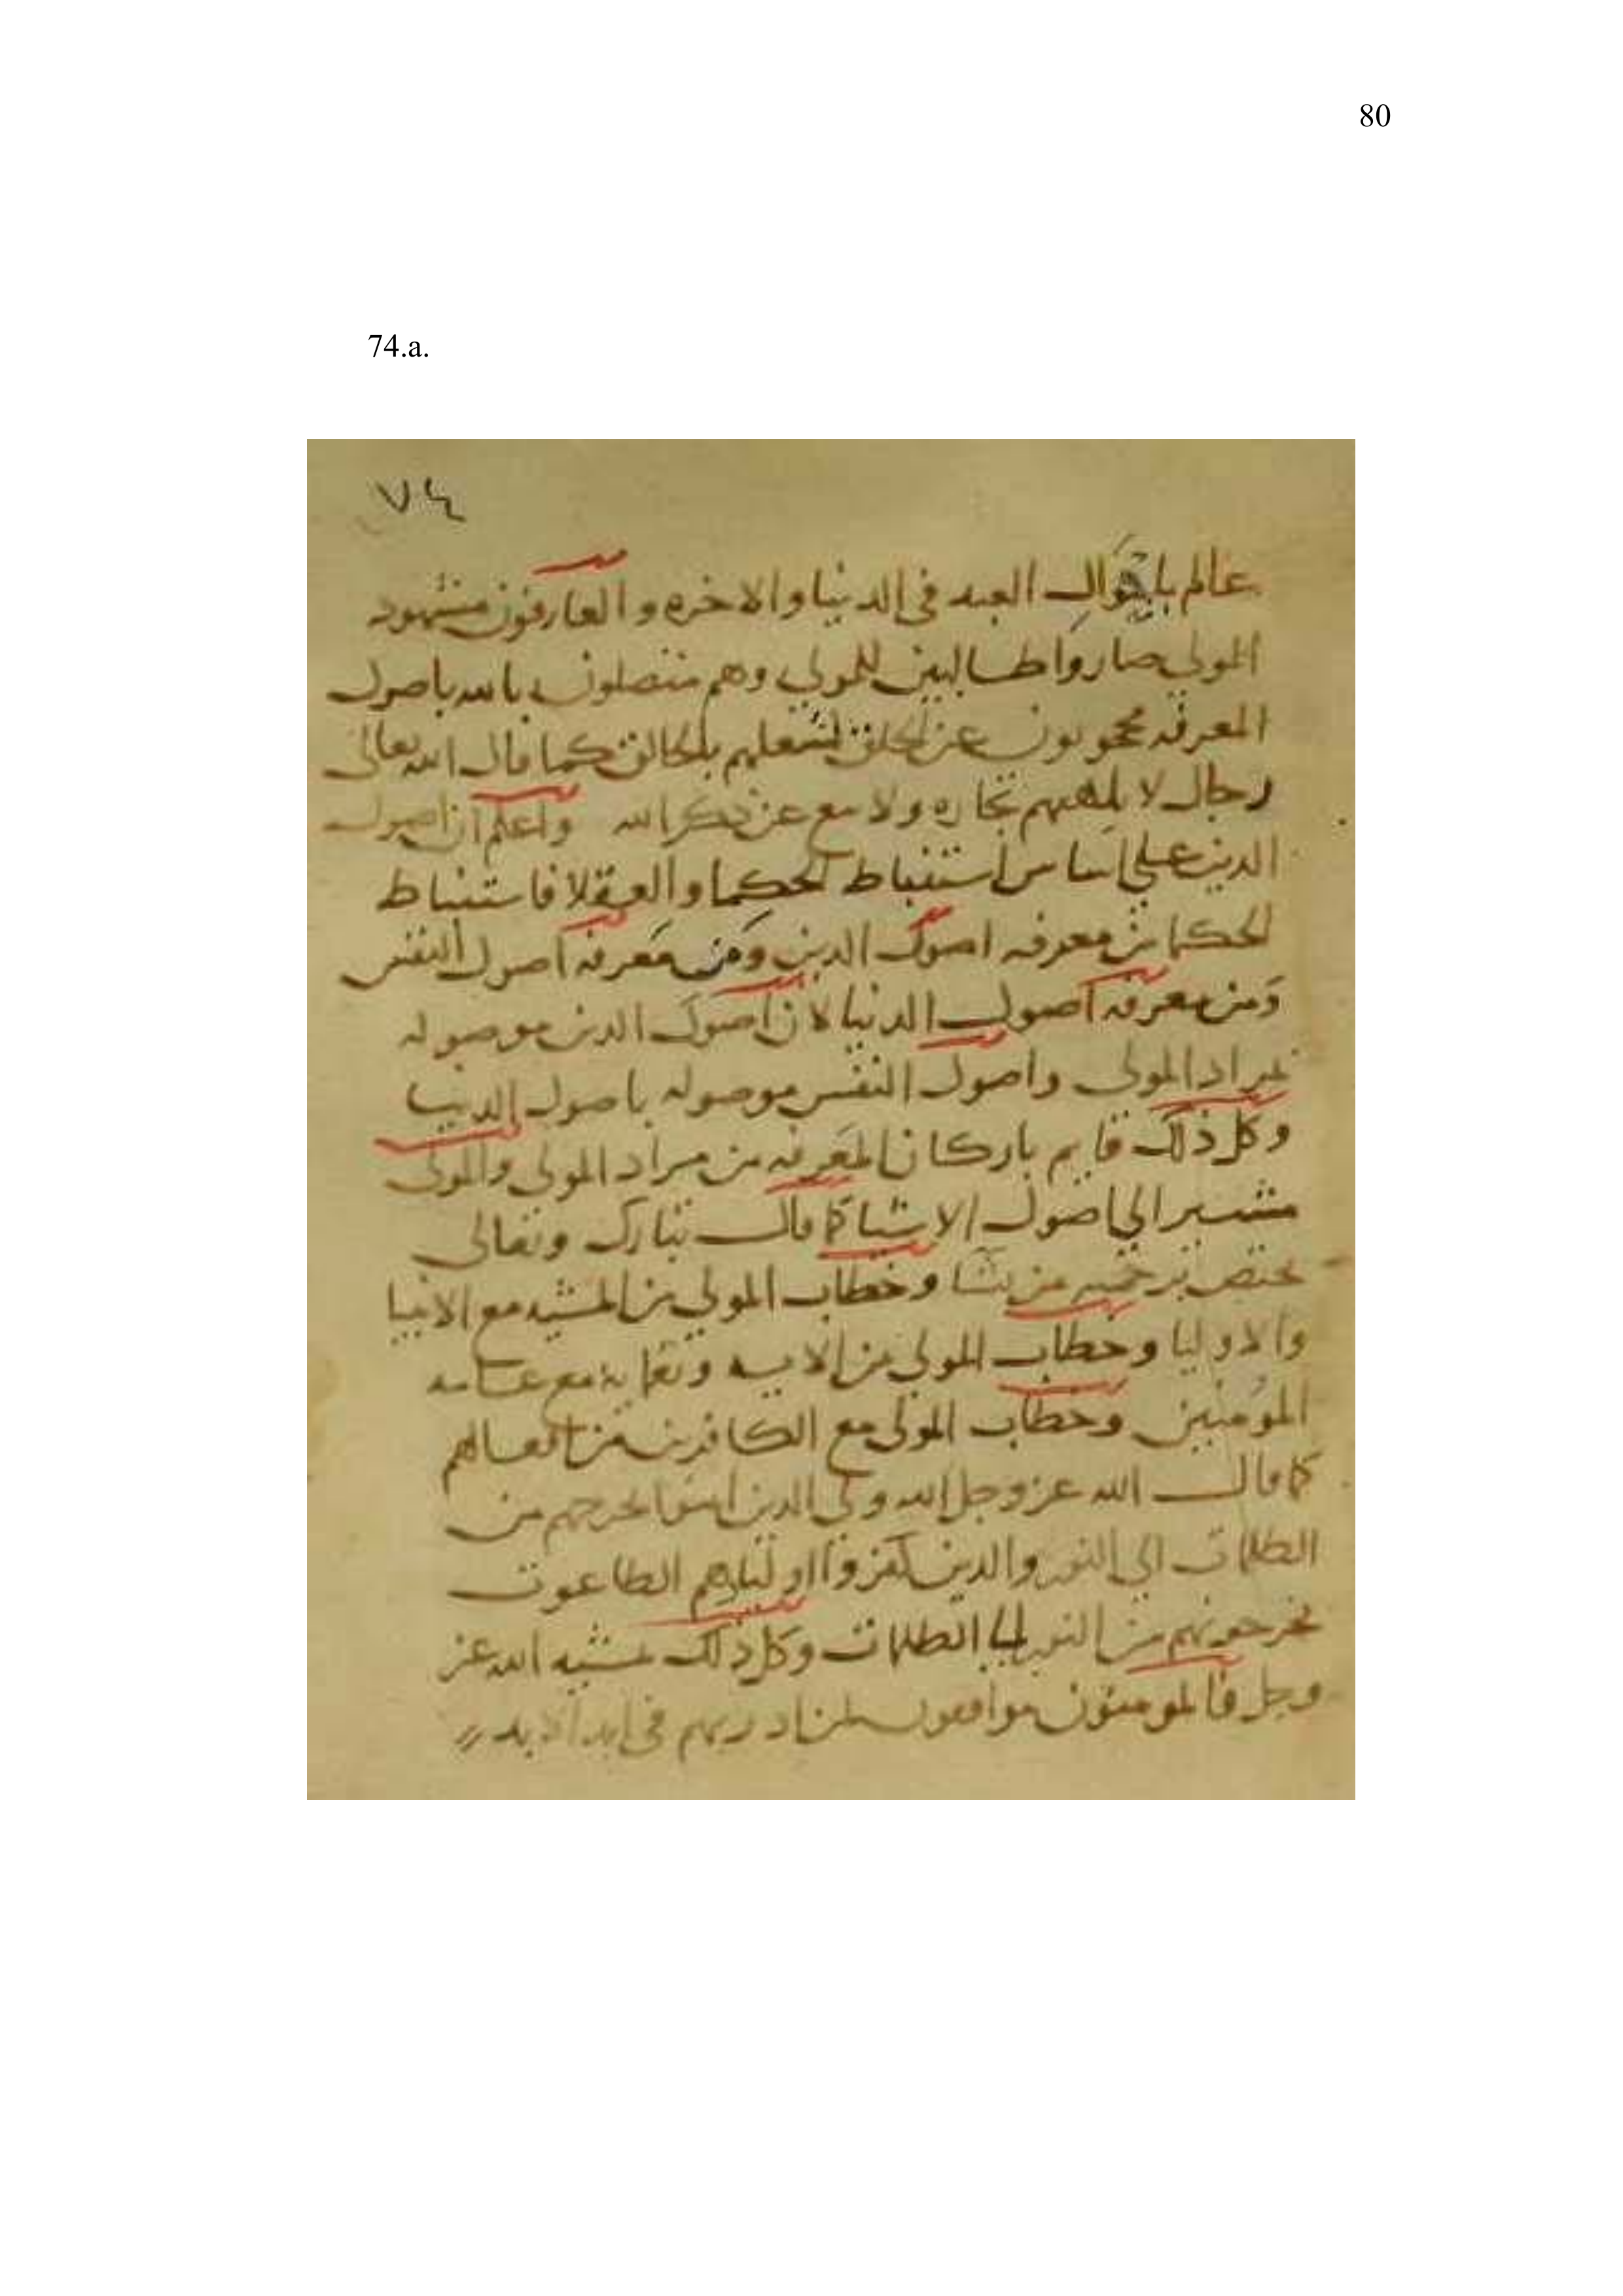 80
74.a.
٧٤
عالم باحوال العبد فى الدنيا والاخره والعارفون مشهود
المولي صاروا طالبين للمولي وهم متصلون بالله باصول
المعرفه محجوبون عن الخلق لشغلهم بالخالق كما قال الله تعالى
رجال لا تلهيهم تجاره ولا بيع عن ذكر الله واعلم ان اصول
الدين علي اساس استنباط الحكما والعقلا فاستنباط
الحكما من معرفه اصول الدين ومن معرفه اصول النفس
ومن معرفه اصول الدنيا لان اصول الدين موصوله
بمراد المولى واصول النفس موصوله باصول الدنيا
وكل ذلك قايم باركان المعرفه من مراد المولى والمولى
مشير الي اصول الاشيا كما قال تبارك وتعالى
يختص برحمته من يشا وخطاب المولي من المشيه مع الانبيا
والاوليا وخطاب المولي من الايه ونعمايه مع عامه
المومنين وخطاب المولى مع الكافرين من افعالهم
كما قال الله عز وجل الله ولي الدين امنوا يخرجهم من
الظلمات الي النور والدين كفروا اوليايهم الطاغوت
يخرجونهم من النور الي الظلمات وكل ذلك مشيه الله عز
وجل فالمومنون موافقون لمراد ربهم فى ابد الابد